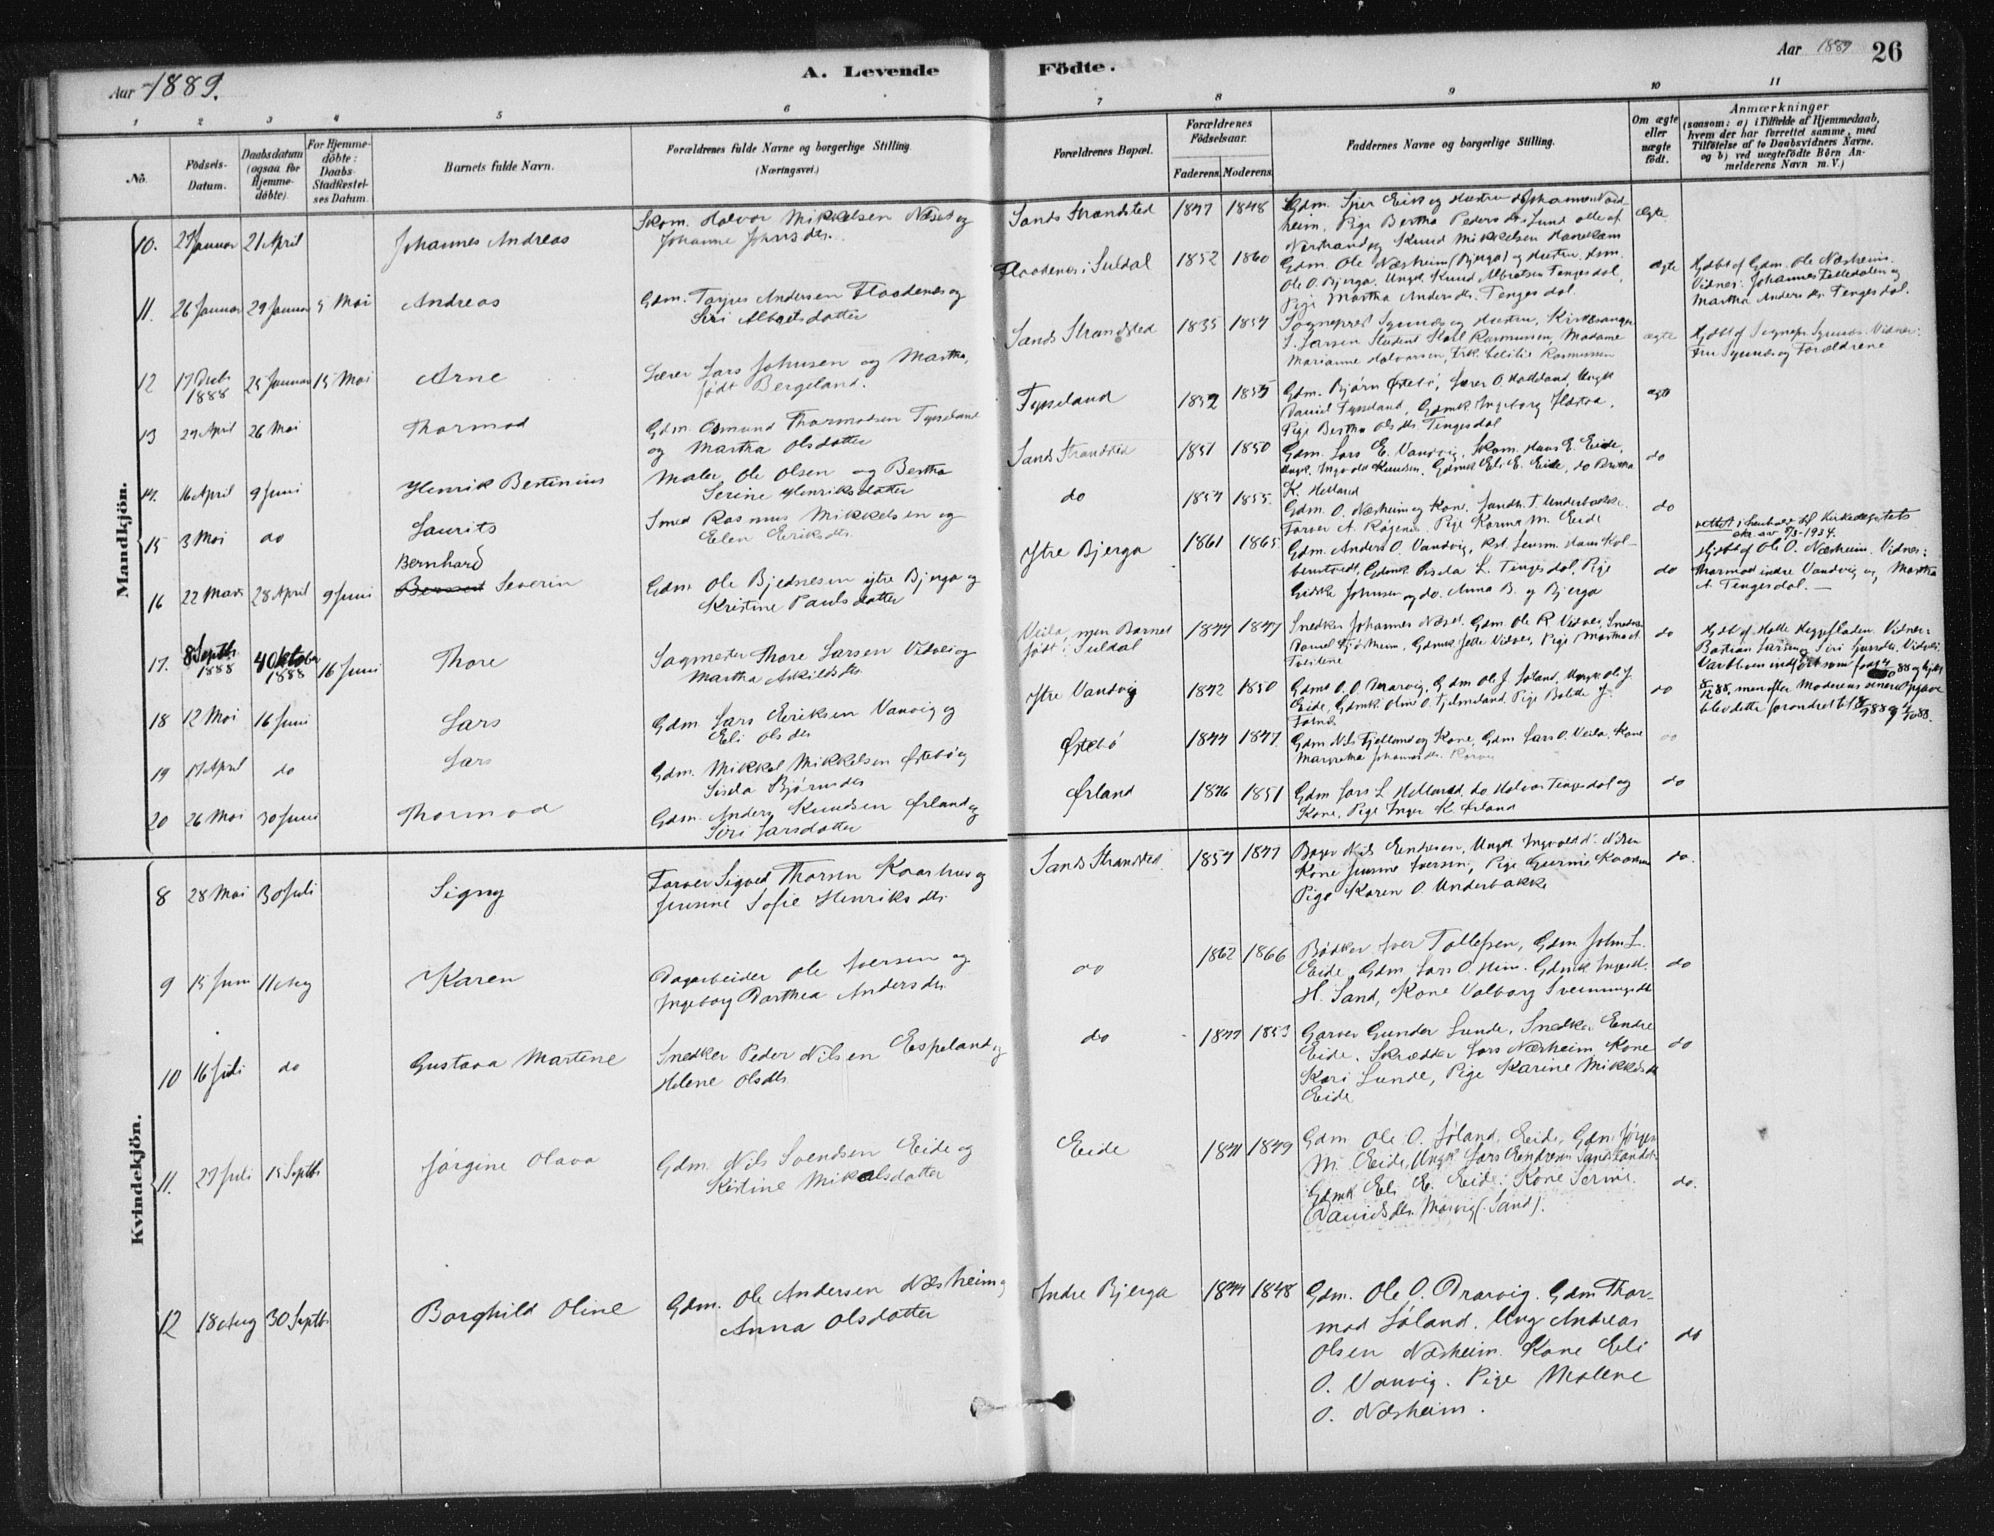 Aar 1889.
A. Levende
Födte.
Aar 1889
26
1 2 3 4 5 6 7 8 9 10 11
No.
Födsels-Datum.
Daabsdatum (ogsaa for Hjemme-döbte).
For Hjemme-döbte: Daabs-Stadfæstel-ses Datum.
Barnets fulde Navn.
Forældrenes fulde Navne og borgerlige Stilling. (Næringsvei.)
Forældrenes Bopæl.
Forældrenes Födselsaar.
Faderens. Moderens.
Faddernes Navne og borgerlige Stilling.
Om ægte eller uægte födt.
Anmærkninger
(saasom: a) i Tilfælde af Hjemmedaab, hvem der har forrettet samme, med Tilföielse af to Daabsvidners Navne, og b) ved uægtefödte Börn An-melderens Navn m. V.)
Mandkjön.
10. Januar 21 April Johannes Andreas
Skom. Halvor Mikkelsen Næset og
Johanne Johnsdtr.
Sands Strandsted 1847 1848
Pige Bertha Pedersdtr Lund alle af
Knud Mikkelsen
ægte
11. 26 Januar 29 Januar 5 Mai Andreas
Gdm. Tarjus Andersen Flaadenes og
Siri Albretsdatter
Flaadenes i Suldal 1852 1860
Gdm. Ole Næsheim (Bjerga) og Hustru
Ole O. Bjerga, Ungk. Knud Albretsen Tengesdal,
Pige Martha Andersdtr. Tengesdal.
ægte
Hjdbt af Gdm. Ole Næsheim.
Vidner: Johannes og
Martha Andersdtr. Tengesdal.
12 17 Decb. 1888 25 Januar 15 Mai Arne
Lærer Lars Johnsen og Martha,
født Bergeland.
Sands Strandsted 1835 1854
Sogneprest og Hustru, Kirkesanger
S. Larsen Student Karl Rasmussen, Madame
Marianne Halvorsen, Frk. Cecilie Rasmussen
ægte
Hjdbt af Sognepr. Vidner:
Fru og Forældrene
13 29 April 26 Mai Thormod
Gdm. Osmund Thormodsen Tysseland
og Martha Olsdatter
Tysseland 1852 1855
Gdm. Bjørn Østebø, Lærer O. Ungk.
Daniel Tysseland, Gdmk. Ingeborg
Pige Bertha Olsdtr Tengesdal
ægte
14. 16 April 9 Juni Henrik Bertinius
Maler Ole Olsen og Bertha
Serine Henriksdatter
Sands Strandsted 1851 1850
Gdm. Lars E. Vandvig, Skom. Hans E. Eide,
Ungk. Ingvald Knudsen, Gdmk Eli E. Eide, do Bertha
K. Helland
do
15 3 Mai do Laurits
Smed Rasmus Mikkelsen og
Elen Eriksdtr.
do 1854 1855.
Gdm. O. Næsheim og Kone, Landh. T. Underbakke.
Farver A. Røgenes, Pige Karina M. Eide
do
16 22 Mars 28 April 9 Juni Bernhard
Severin
Gdm Ole Bjednesen ytre Bjerga og
Kristine Paulsdatter
Ytre Bjerga 1861 1865.
Gdm. Anders O. Vandvig, Rst. Lensm. Hans Kol-
bentvedt, Gdmk Siselia L. Tengesdal, Pige
Gidske Johnsen og do. Anna B. Bjerga
do
rettet i henhold til Kirkedeptets
skr. av 5/3-1934.
Hjdbt af Ole O. Næsheim. Vidner:
Thormod indre Vandvig og Martha
A. Tengesdal. —
17. 8 Septbr 1888 4 Oktober 1888 16 Juni Thore
Sagmester Thore Larsen Vidvei og
Martha Askildsdtr
Veila, men Barnet
født i Suldal 1844 1847
Snedker Johannes Næset, Gdm Ole R. Vidvei, Snedker
Daniel Gdmk Jette Vidvei, Pige Martha
do
Hjdbt af Helle Heggefladen. Vidner:
Bastian Larsen og Siri
men efter Moderens senere Opgave
blev dette forandret til 8/9 88 og 4/10 88.
18 12 Mai 16 Juni Lars
Gdm Lars Eriksen Vanvig og
Eli Olsdtr
Ytre Vandvig 1842 1850
Gdmd O. O. Marvig, Gdm Ole J. Løland, Ungk Ole J.
Eide, Gdmk Oline O. Tjelmeland, Pige Bolette J.
do
19 17 April do Lars
Gdm. Mikkel Mikkelsen Østebø og
Sisela Bjørnsdtr
Østebø 1844 1847.
Gdm. Nils Tjelland og Kone, Gdm Lars O. Veila, Kone
Margretha Johannesdtr.
do
20 26 Mai 30 Juni Thormod
Gdm. Anders Knudsen Ørland og
Siri Larsdatter
Ørland 1846 1851
Gdm Lars L. Helland, do Halvor Tengesdal og
Kone, Pige Inger K. Ørland
do
Kvindekjön.
8 28 Mai 30 Juli Signy
Farver Sigved Thorsen Kaarhus og
Jensine Sofie Henriksdtr.
Sands Strandsted. 1854 1847
Bager Nils Endresen, Ungk Ingvald Nilsen
Kone Jensine Iversen, Pige Gurine
Pige Karen O. Underbakke
do.
9 15 Juni 11 Aug Karen
Dagarbeider Ole Iversen og
Ingeborg Dorthea Andersdtr.
do 1862 1866
Bødker Iver Tollefsen, Gdm John L.
Eide, Gdm Lars O. Hiim. Gdmk Ingvild.
H. Sand, Kone Valborg Svenningsdtr
do
10 16 Juli do Gustava Martine
Snedker Peder Nilsen Espeland og
Helene Olsdtr
do 1847 1853
Garver Gunder Lunde, Snedker Endre
Eide, Skrædder Lars Næsheim, Kone
Kari Lunde, Pige Karine Mikkelsdtr
Eide
do
11. 27 Juli 15 Septbr Jørgine Olava
Gdm. Nils Svendsen Eide og
Kistine Mikalsdatter
Eide 1841 1849
Gdm Ole O. Løland, Eide, Gdm Jørgen
M. Eide, Ungk Lars Endresen
Gdmk Eli E. Eide. Kone Serine.
Davidsdtr. Marvig (Sand).
do.
12 18 Aug 30 Septbr Borghild Oline
Gdm. Ole Andersen Næsheim og
Anna Olsdatter
Indre Bjerga 1844 1848
Gdm. Ole O. Drarvig. Gdm Thor-
mod Løland. Ung Andreas
Olsen Næsheim. Kone Eli
O. Vanvig. Pige Malene
O. Næsheim.
do